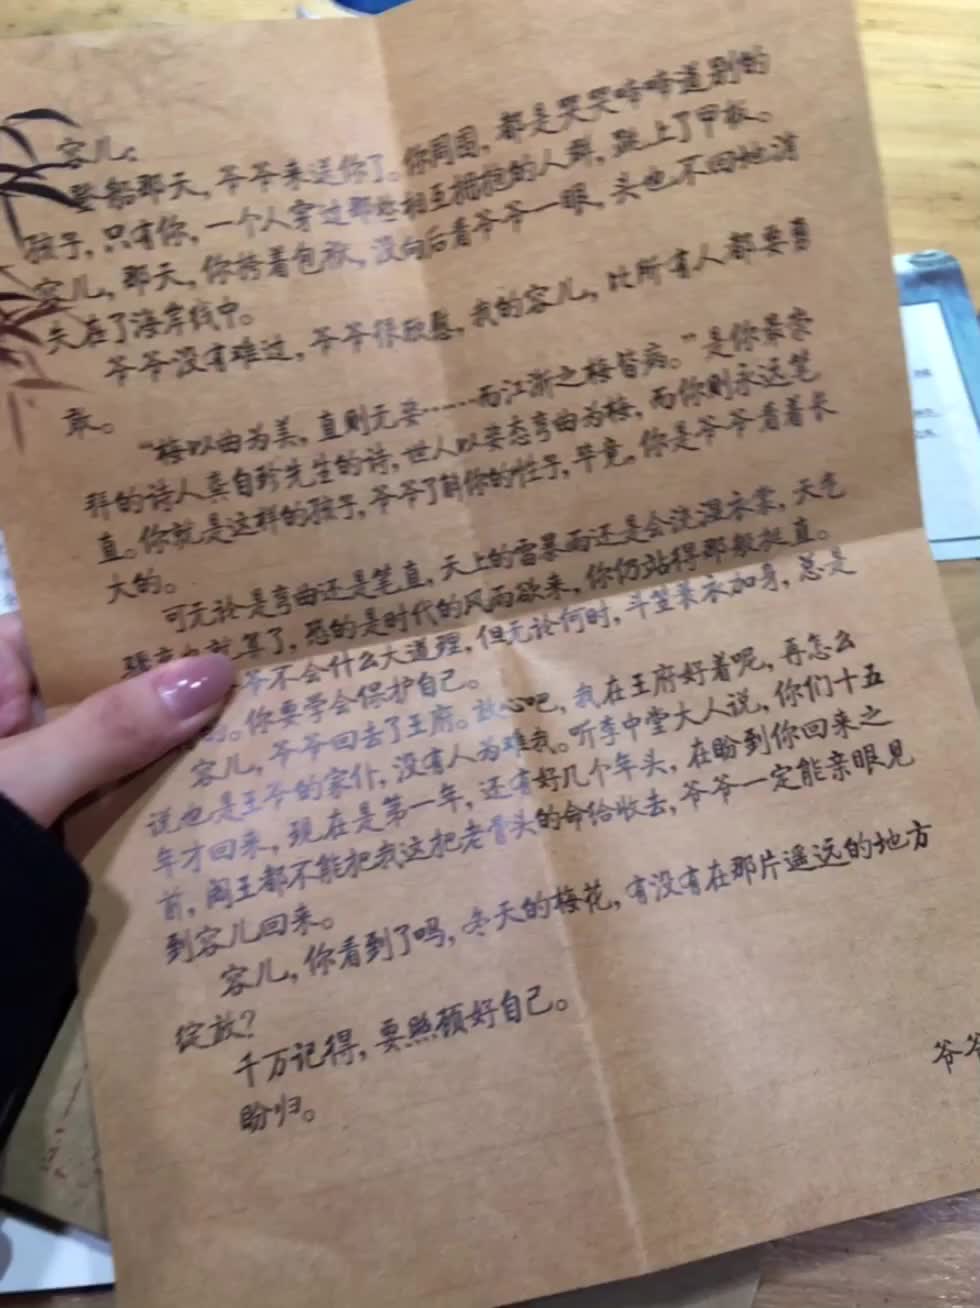 容儿：
登船那天，爷爷来送你了。你周围，都是哭哭啼啼道别的
孩子，只有你，一个人穿过那些相互拥抱的人群，跳上了甲板。
容儿，那天，你挎着包袱，没向后看爷爷一眼，头也不回地消
失在了海岸线中。
爷爷没有难过，爷爷很欣慰，我的容儿，比所有人都要勇
敢。
“梅以曲为美，直则无姿……而江浙之梅皆病。”是你最崇
拜的诗人龚自珍先生的诗，世人以姿态弯曲为梅，而你则永远笔
直。你就是这样的孩子，爷爷了解你的性子，毕竟，你是爷爷看着长
大的。
可无论是弯曲还是笔直，天上的雷暴雨还是会浇湿衣裳，天气
就算了，恐的是时代的风雨欲来，你仍站得那般挺直。
爷不会什么大道理，但无论何时，斗笠蓑衣加身，总是
的。你要学会保护自己。
容儿，爷爷回去了王府。放心吧，我在王府好着呢，再怎么
说也是王爷的家仆，没有人为难我。听李中堂大人说，你们十五
年才回来，现在是第一年，还有好几个年头，在盼到你回来之
前，阎王都不能把我这把老骨头的命给收去，爷爷一定能亲眼见
到容儿回来。
容儿，你看到了吗，冬天的梅花，有没有在那片遥远的地方
绽放？
千万记得，要照顾好自己。
盼归。
爷爷